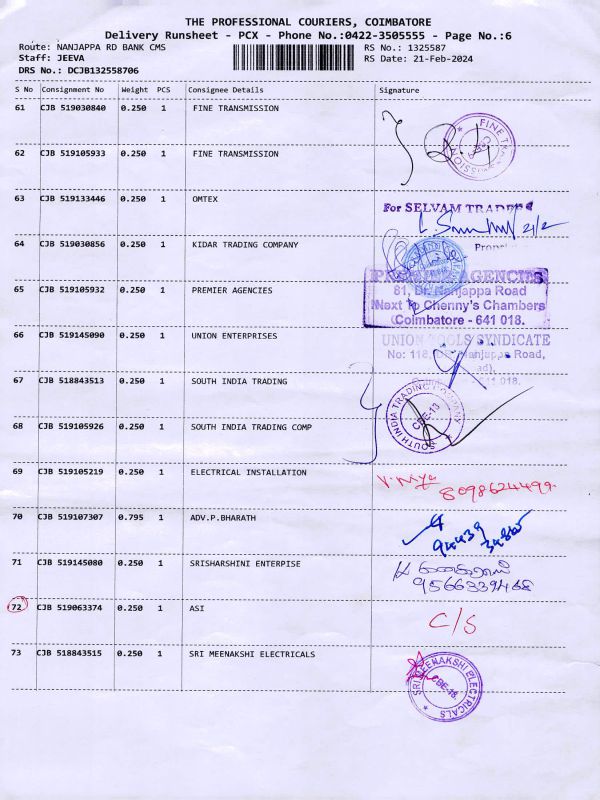 THE PROFESSIONAL COURIERS, COIMBATORE
Delivery Runsheet - PCX - Phone No.:0422-3505555 - Page No.:6
Route: NANJAPPA RD BANK CMS
RS No.: 1325587
Staff: JEEVA
RS Date: 21-Feb-2024
DRS No.: DCJB132558706
S No Consignment No Weight PCS Consignee Details Signature
61 CJB 519030840 0.250 1 FINE TRANSMISSION
62 CJB 519105933 0.250 1 FINE TRANSMISSION
63 CJB 519133446 0.250 1 OMTEX
For SELVAM TRADERS
21/2
64 CJB 519030856 0.250 1 KIDAR TRADING COMPANY
65 CJB 519105932 0.250 1 PREMIER AGENCIES
PREMIER AGENCIES
81, Dr. Nanjappa Road
Next To Chenny's Chambers
Coimbatore - 641 018.
66 CJB 519145090 0.250 1 UNION ENTERPRISES
UNION TOOLS SYNDICATE
No: 118, Dr. Nanjappa Road,
67 CJB 518843513 0.250 1 SOUTH INDIA TRADING
SOUTH INDIA TRADING COMPANY
CBE-13
68 CJB 519105926 0.250 1 SOUTH INDIA TRADING COMP
69 CJB 519105219 0.250 1 ELECTRICAL INSTALLATION
8098624499
70 CJB 519107307 0.795 1 ADV.P.BHARATH
71 CJB 519145080 0.250 1 SRISHARSHINI ENTERPISE
9566339468
72 CJB 519063374 0.250 1 ASI
C/S
73 CJB 518843515 0.250 1 SRI MEENAKSHI ELECTRICALS
SRI MEENAKSHI ELECTRICALS
CBE-18.